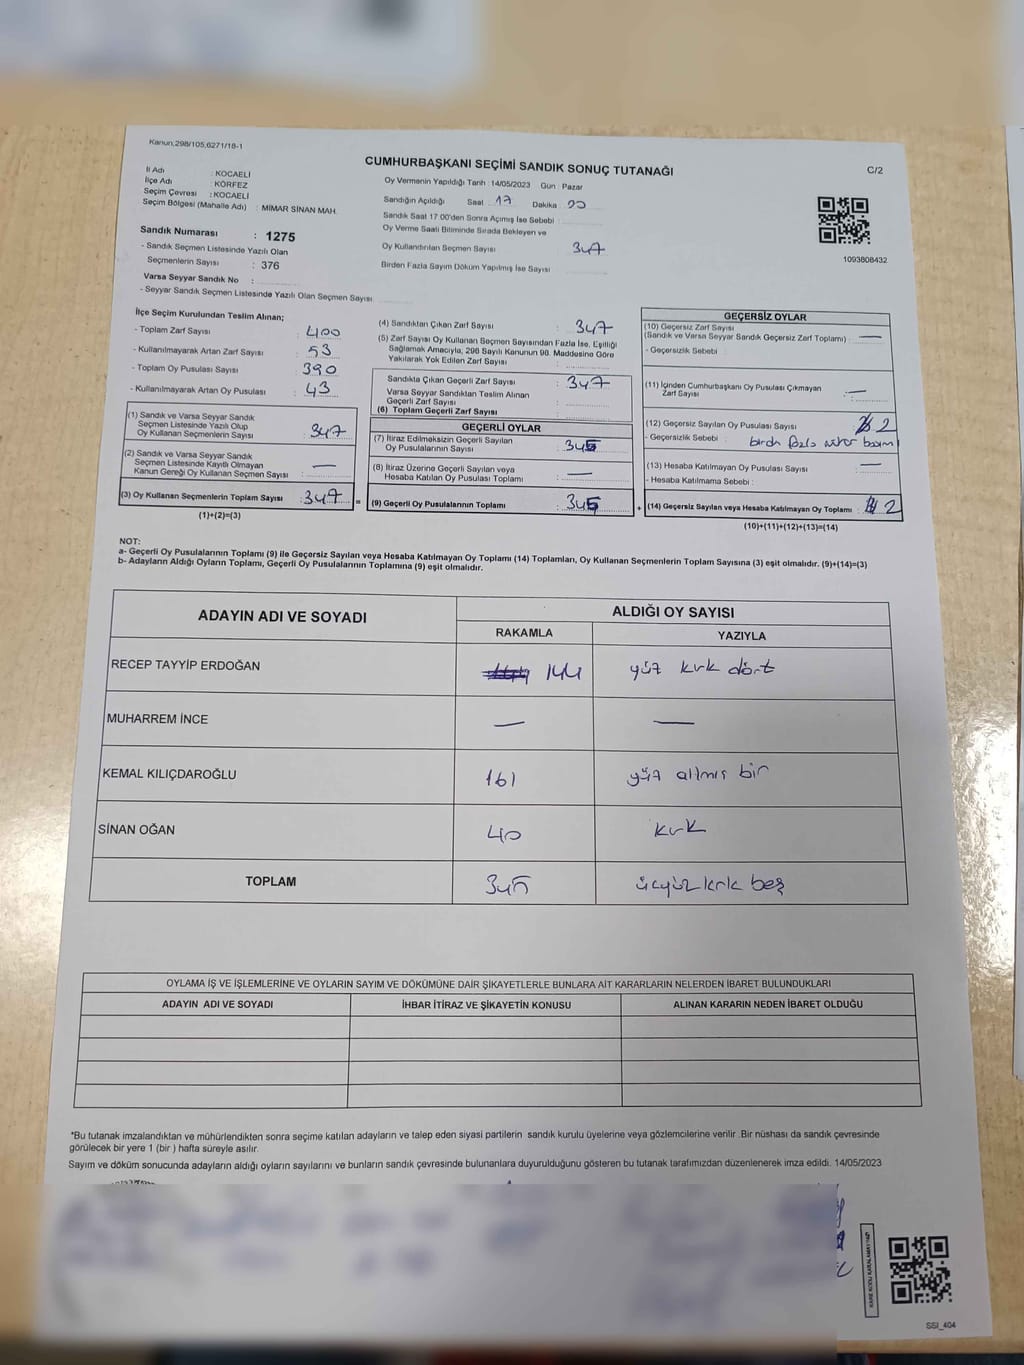 Kanun,298/105,6271/18-1
CUMHURBAŞKANI SEÇİMİ SANDIK SONUÇ TUTANAĞI
C/2
İl Adı : KOCAELİ
İlçe Adı : KÖRFEZ
Seçim Çevresi : KOCAELİ
Seçim Bölgesi (Mahalle Adı) : MİMAR SİNAN MAH.
Sandık Numarası : 1275
- Sandık Seçmen Listesinde Yazılı Olan
Seçmenlerin Sayısı : 376
Varsa Seyyar Sandık No :
- Seyyar Sandık Seçmen Listesinde Yazılı Olan Seçmen Sayısı
Oy Vermenin Yapıldığı Tarih :14/05/2023 Gün : Pazar
Sandığın Açıldığı Saat : 17 Dakika : 00
Sandık Saat 17:00'den Sonra Açımış İse Sebebi :
Oy Verme Saati Bitiminde Sırada Bekleyen ve
Oy Kullandırılan Seçmen Sayısı : 347
Birden Fazla Sayım Döküm Yapılmış İse Sayısı
1093808432
İlçe Seçim Kurulundan Teslim Alınan;
- Toplam Zarf Sayısı : 400
- Kullanılmayarak Artan Zarf Sayısı : 53
- Toplam Oy Pusulası Sayısı : 390
- Kullanılmayarak Artan Oy Pusulası : 43
(1) Sandık ve Varsa Seyyar Sandık
Seçmen Listesinde Yazılı Olup
Oy Kullanan Seçmenlerin Sayısı : 347
(2) Sandık ve Varsa Seyyar Sandık
Seçmen Listesinde Kayıtlı Olmayan
Kanun Gereği Oy Kullanan Seçmen Sayısı : —
(3) Oy Kullanan Seçmenlerin Toplam Sayısı : 347 =
(1)+(2)=(3)
(4) Sandıktan Çıkan Zarf Sayısı : 347
(5) Zarf Sayısı Oy Kullanan Seçmen Sayısından Fazla İse, Eşitliği
Sağlamak Amacıyla, 298 Sayılı Kanunun 98. Maddesine Göre
Yakılarak Yok Edilen Zarf Sayısı :
Sandıkta Çıkan Geçerli Zarf Sayısı : 347
Varsa Seyyar Sandıktan Teslim Alınan
Geçerli Zarf Sayısı :
(6) Toplam Geçerli Zarf Sayısı :
GEÇERLİ OYLAR
(7) İtiraz Edilmeksizin Geçerli Sayılan
Oy Pusulasının Sayısı : 345
(8) İtiraz Üzerine Geçerli Sayılan veya
Hesaba Katılan Oy Pusulası Toplamı : —
(9) Geçerli Oy Pusulalarının Toplamı : 345 +
GEÇERSİZ OYLAR
(10) Geçersiz Zarf Sayısı
(Sandık ve Varsa Seyyar Sandık Geçersiz Zarf Toplamı) : —
- Geçersizlik Sebebi :
(11) İçinden Cumhurbaşkanı Oy Pusulası Çıkmayan
Zarf Sayısı : —
(12) Geçersiz Sayılan Oy Pusulası Sayısı : 2
- Geçersizlik Sebebi :
(13) Hesaba Katılmayan Oy Pusulası Sayısı : —
- Hesaba Katılmama Sebebi :
(14) Geçersiz Sayılan veya Hesaba Katılmayan Oy Toplamı : 2
(10)+(11)+(12)+(13)=(14)
NOT:
a- Geçerli Oy Pusulalarının Toplamı (9) ile Geçersiz Sayılan veya Hesaba Katılmayan Oy Toplamı (14) Toplamları, Oy Kullanan Seçmenlerin Toplam Sayısına (3) eşit olmalıdır. (9)+(14)=(3)
b- Adayların Aldığı Oyların Toplamı, Geçerli Oy Pusulalarının Toplamına (9) eşit olmalıdır.
ADAYIN ADI VE SOYADI ALDIĞI OY SAYISI
RAKAMLA YAZIYLA
RECEP TAYYİP ERDOĞAN 144 yüz kırk dört
MUHARREM İNCE — —
KEMAL KILIÇDAROĞLU 161 yüz altmış bir
SİNAN OĞAN 40 kırk
TOPLAM 345 üçyüz kırk beş
OYLAMA İŞ VE İŞLEMLERİNE VE OYLARIN SAYIM VE DÖKÜMÜNE DAİR ŞİKAYETLERLE BUNLARA AİT KARARLARIN NELERDEN İBARET BULUNDUKLARI
ADAYIN ADI VE SOYADI İHBAR İTİRAZ VE ŞİKAYETİN KONUSU ALINAN KARARIN NEDEN İBARET OLDUĞU
*Bu tutanak imzalandıktan ve mühürlendikten sonra seçime katılan adayların ve talep eden siyasi partilerin sandık kurulu üyelerine veya gözlemcilerine verilir .Bir nüshası da sandık çevresinde
görülecek bir yere 1 (bir ) hafta süreyle asılır.
Sayım ve döküm sonucunda adayların aldığı oyların sayılarını ve bunların sandık çevresinde bulunanlara duyurulduğunu gösteren bu tutanak tarafımızdan düzenlenerek imza edildi. 14/05/2023
SSI_404